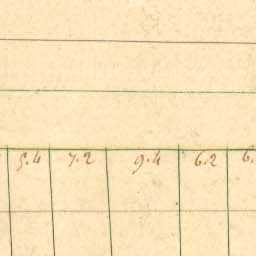 5.4 7.2 9.4 6.2 6.